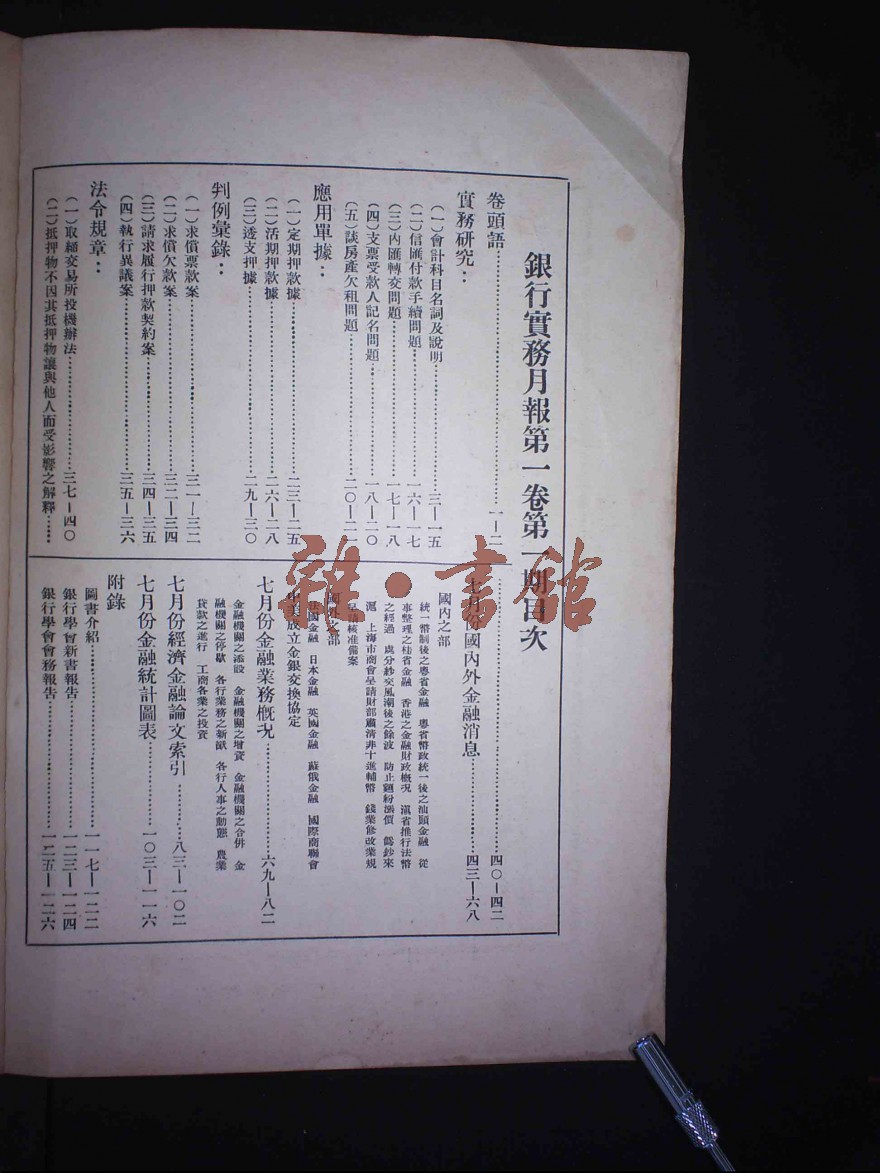 銀行實務月報第一卷第一期目次
卷頭語……一—二
實務研究：
（一）會計科目名詞及說明……三—一五
（二）信匯付款手續問題……一六—一七
（三）內匯轉交問題……一七—一八
（四）支票受款人記名問題……一八—二〇
（五）談房產欠租問題……二〇—二一
應用單據：
（一）定期押款據……二三—二五
（二）活期押款據……二六—二八
（三）透支押據……二九—三〇
判例彙錄：
（一）求償票款案……三一—三二
（二）求償欠款案……三二—三四
（三）請求履行押款契約案……三四—三五
（四）執行異議案……三五—三六
法令規章：
（一）取締交易所投機辦法……三七—四〇
（二）抵押物不因其抵押物讓與他人而受影響之解釋……
……四〇—四二
七月份國內外金融消息……四三—六八
國內之部
統一幣制後之粵省金融　粵省幣政統一後之汕頭金融　從
事整理之桂省金融　香港之金融財政概況　滇省推行法幣
之經過　處分紗交風潮後之餘波　防止麵粉漲價　僞鈔來
滬　上海市商會呈請財部肅清非十進輔幣　錢業修改業規
呈請核准備案
國外之部
法國金融　日本金融　英國金融　蘇俄金融　國際商聯會
中美成立金銀交換協定
七月份金融業務概況……六九—八二
金融機關之添設　金融機關之增資　金融機關之合併　金
融機關之停歇　各行業務之新猷　各行人事之動態　農業
貸款之進行　工商各業之投資
七月份經濟金融論文索引……八三—一〇二
七月份金融統計圖表……一〇三—一一六
附錄
圖書介紹……一一七—一二二
銀行學會新書報告……一二三—一二四
銀行學會會務報告……一二五—一二六
雜·書館